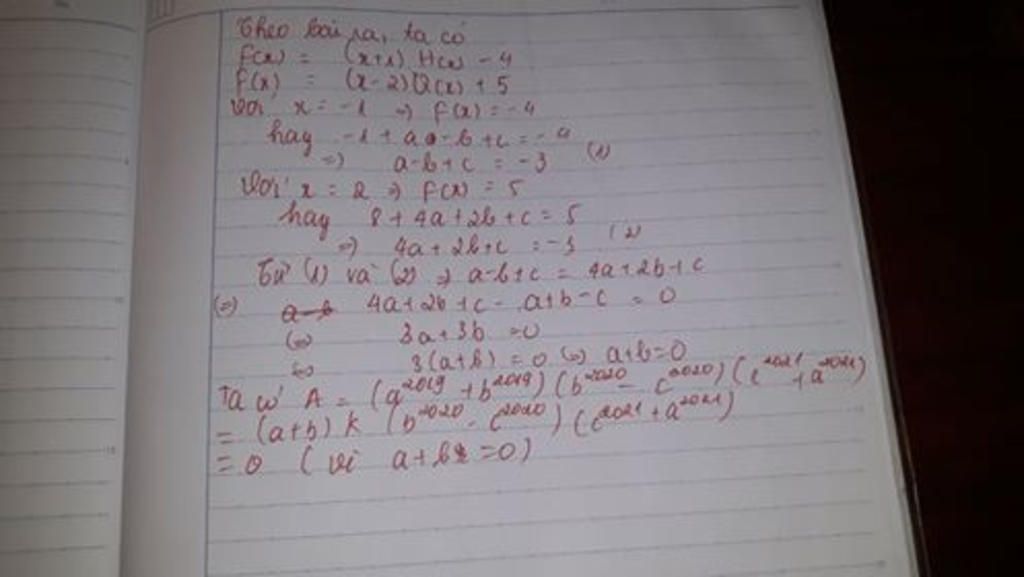 Theo bài ra, ta có
f(x) = (x+1) H(x) - 4
f(x) = (x-2) Q(x) + 5
Với x = -1 => f(x) = -4
hay -1 + a - b + c = -4
=> a-b+c = -3 (1)
Với x = 2 => f(x) = 5
hay 8 + 4a + 2b + c = 5
=> 4a + 2b + c = -3 (2)
Từ (1) và (2) => a-b+c = 4a + 2b + c
(=) a-b 4a+2b+c - a+b-c = 0
(=) 3a+3b = 0
(=) 3(a+b) = 0 (=) a+b=0
Ta có A = (a^2019 + b^2019) (b^2020 - c^2020) (c^2021 + a^2021)
= (a+b) k (b^2020 - c^2020) (c^2021 + a^2021)
= 0 (vì a+b = 0)